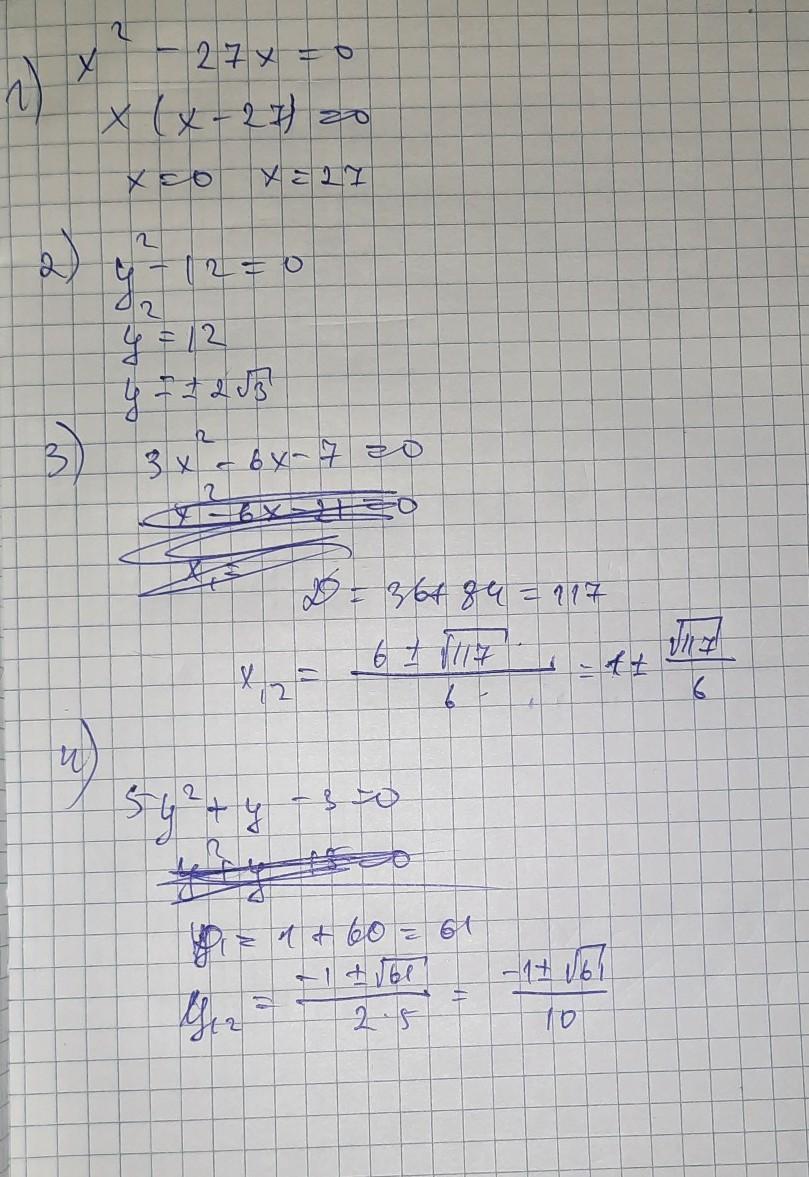 1) x² - 27x = 0
x (x - 27) = 0
x = 0 x = 27
2) y² - 12 = 0
y² = 12
y = ± 2√3
3) 3x² - 6x - 7 = 0
x² - 6x - 21 = 0
x₁ =
D = 36 + 84 = 117
x₁,₂ = (6 ± √117) / 6 = 1 ± √117 / 6
4)
5y² + y - 3 = 0
y² + y - 15 = 0
D₁ = 1 + 60 = 61
y₁,₂ = (-1 ± √61) / (2·5) = (-1 ± √61) / 10